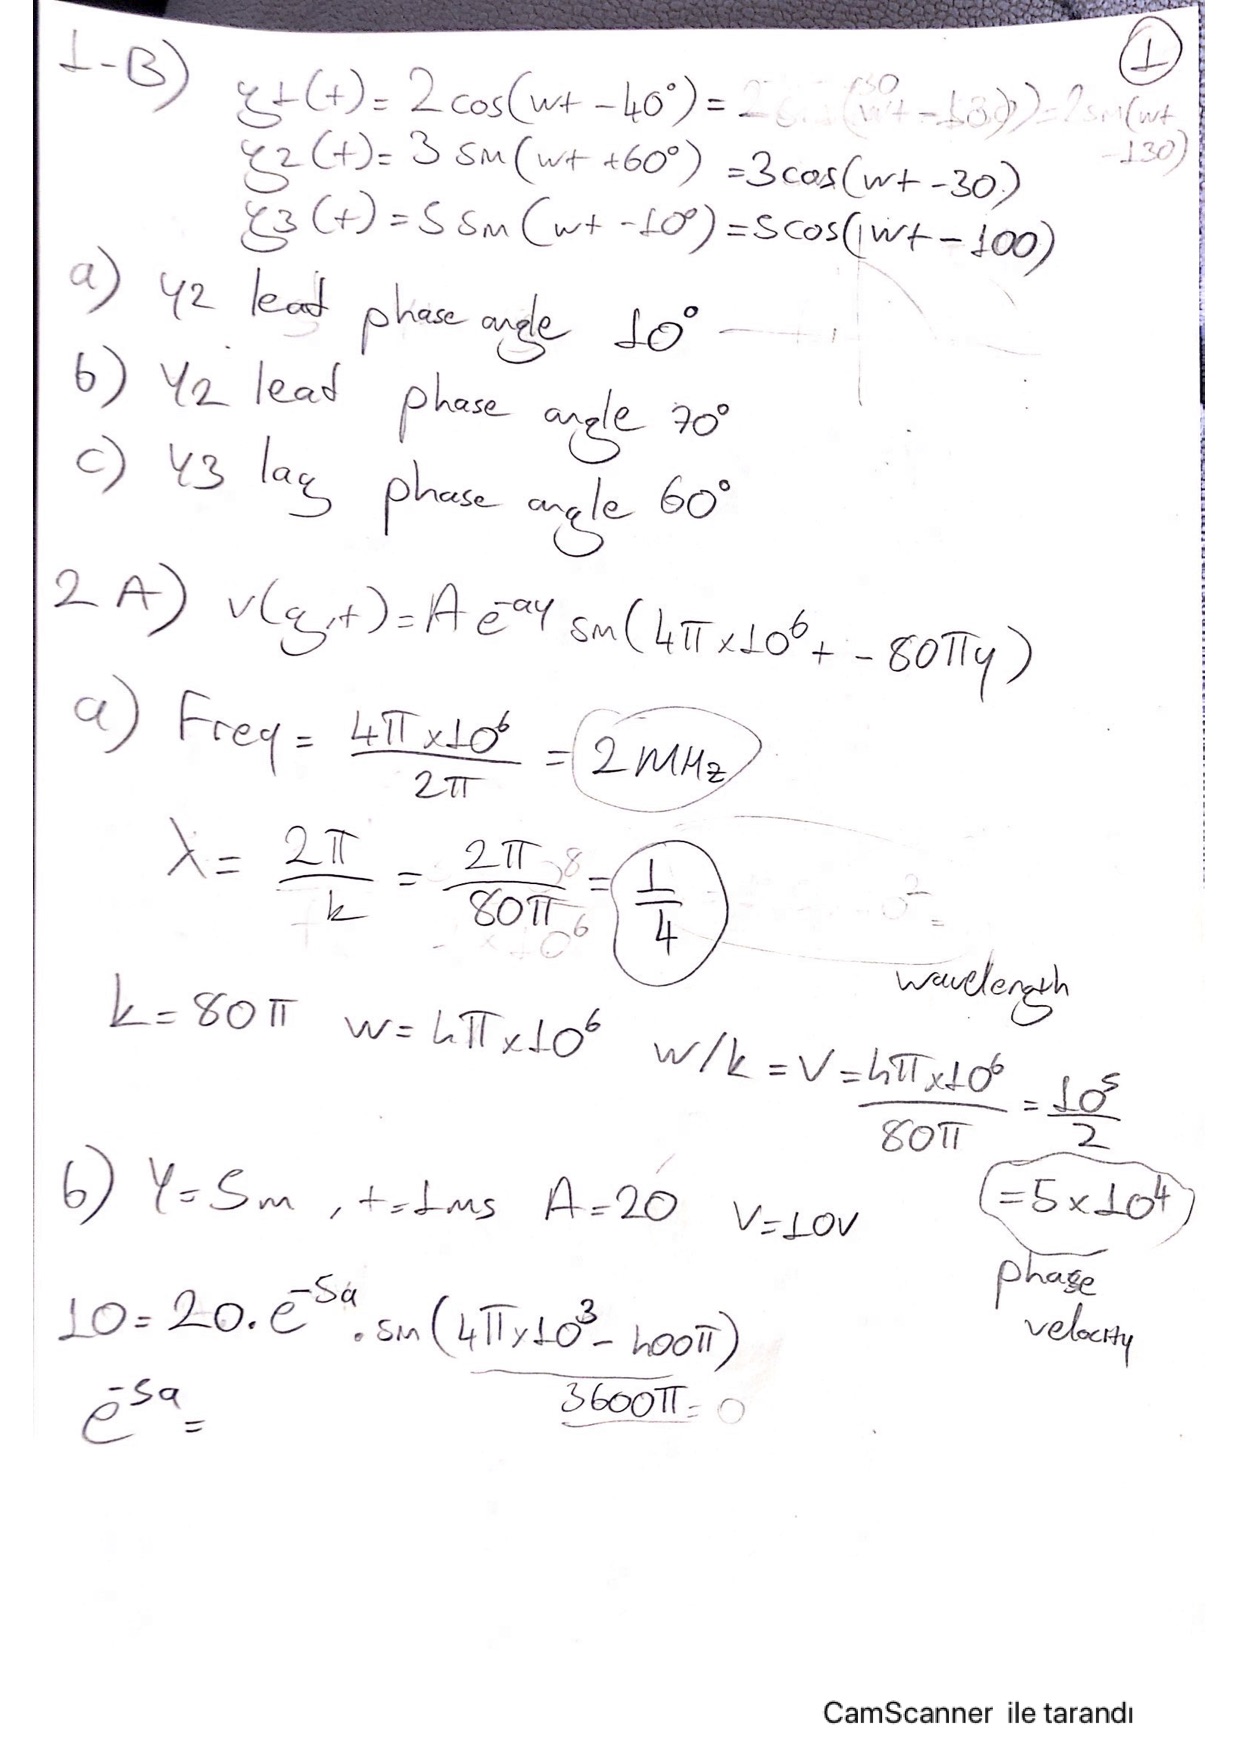 1
1-B)
y1(t) = 2 cos(wt - 40°) = 2 sin(wt - 130)
y2(t) = 3 sin(wt + 60°) = 3 cos(wt - 30)
y3(t) = 5 sin(wt - 10°) = 5 cos(wt - 100)
a) y2 lead phase angle 10°
b) y2 lead phase angle 70°
c) y3 lag phase angle 60°
2 A) v(y,t) = A e^-ay sin(4π x 10^6 t - 80πy)
a) Freq = 4π x 10^6 / 2π = 2 MHz
λ = 2π / k = 2π / 80π = 1/4
wavelength
k = 80π w = 4π x 10^6 w/k = V = 4π x 10^6 / 80π = 10^5 / 2
= 5 x 10^4
phase velocity
b) Y = 5m, t = 1ms A = 20 V = 10V
10 = 20. e^-5a . sin(4π x 10^3 - 400π)
3600π = 0
e^-5a =
CamScanner ile tarandı